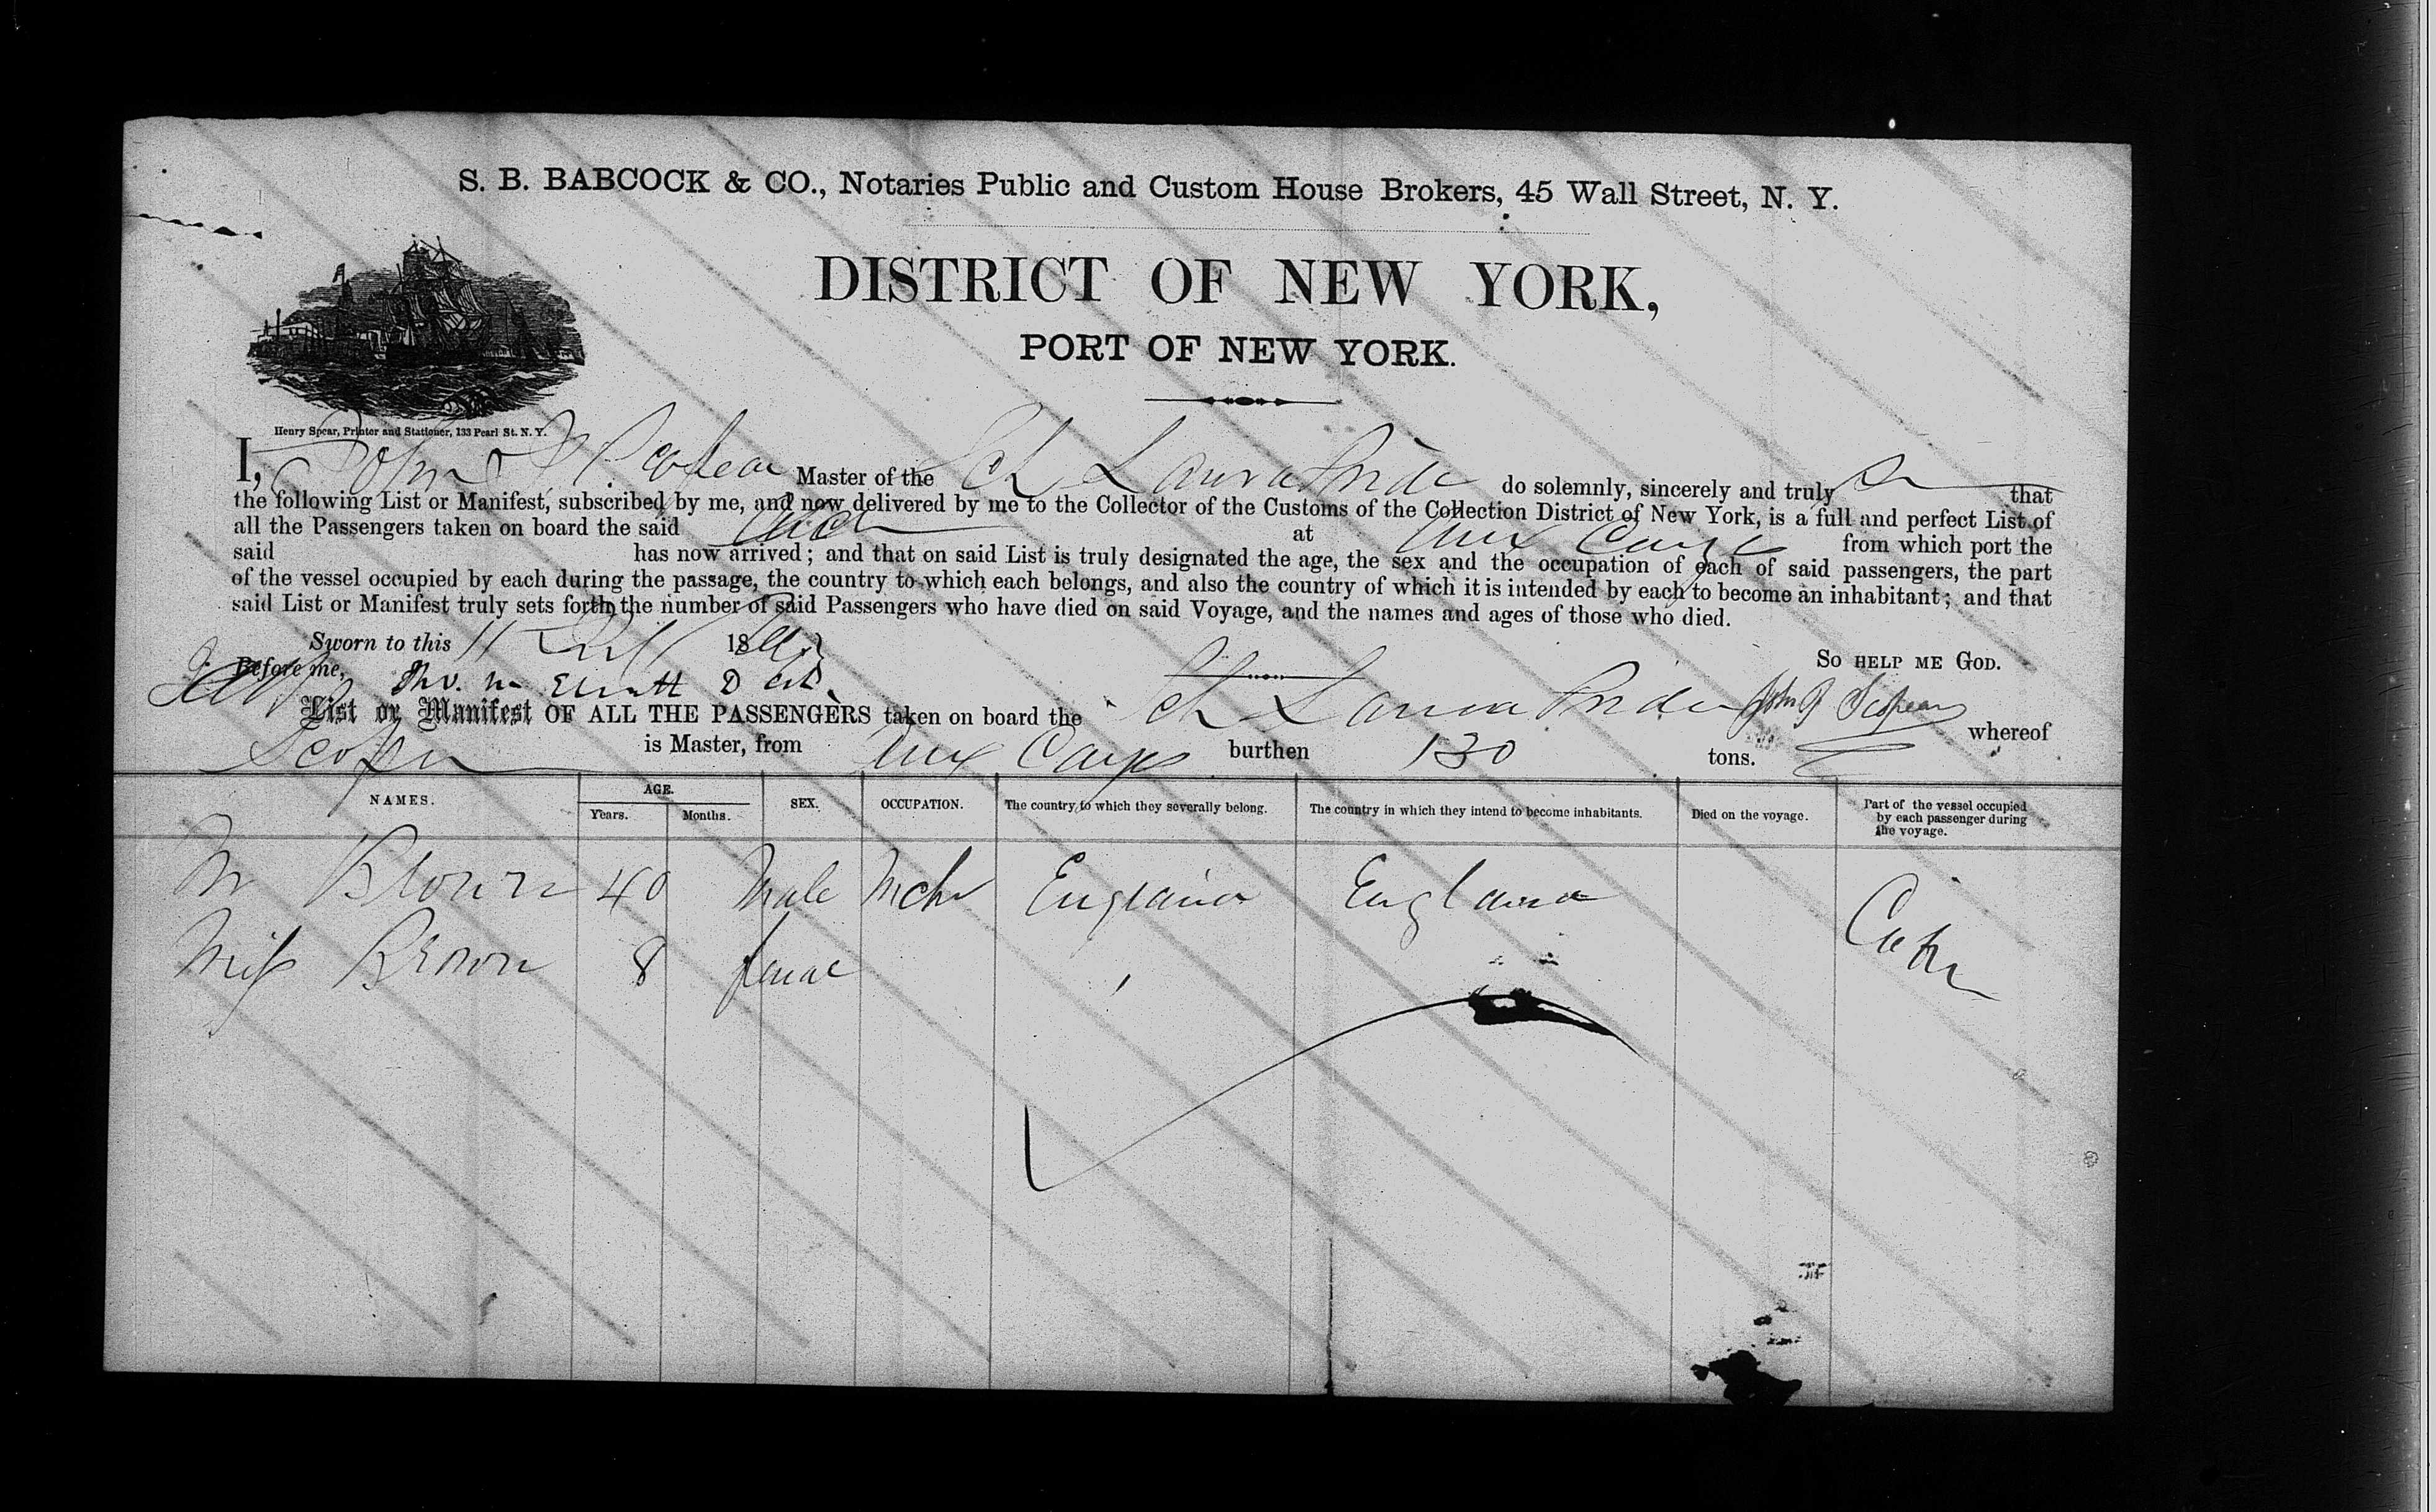 S. B. BABCOCK & CO., Notaries Public and Custom House Brokers, 45 Wall Street, N. Y.
DISTRICT OF NEW YORK,
PORT OF NEW YORK.
Henry Spear, Printer and Stationer, 133 Pearl St. N. Y.
I, John Master of the Sch Laura Pride do solemnly, sincerely and truly that
the following List or Manifest, subscribed by me, and now delivered by me to the Collector of the Customs of the Collection District of New York, is a full and perfect List of
all the Passengers taken on board the said at Aux Cayes from which port the
said has now arrived; and that on said List is truly designated the age, the sex and the occupation of each of said passengers, the part
of the vessel occupied by each during the passage, the country to which each belongs, and also the country of which it is intended by each to become an inhabitant; and that
said List or Manifest truly sets forth the number of said Passengers who have died on said Voyage, and the names and ages of those who died.
Sworn to this 11 18
So HELP ME GOD.
Before me,
List or Manifest OF ALL THE PASSENGERS taken on board the Sch Laura Pride whereof
is Master, from Aux Cayes burthen 130 tons.
NAMES. AGE. Years. Months. SEX. OCCUPATION. The country to which they severally belong. The country in which they intend to become inhabitants. Died on the voyage. Part of the vessel occupied by each passenger during the voyage.
Mr Brown 40 Male Mcht England England
Miss Brown 8 female